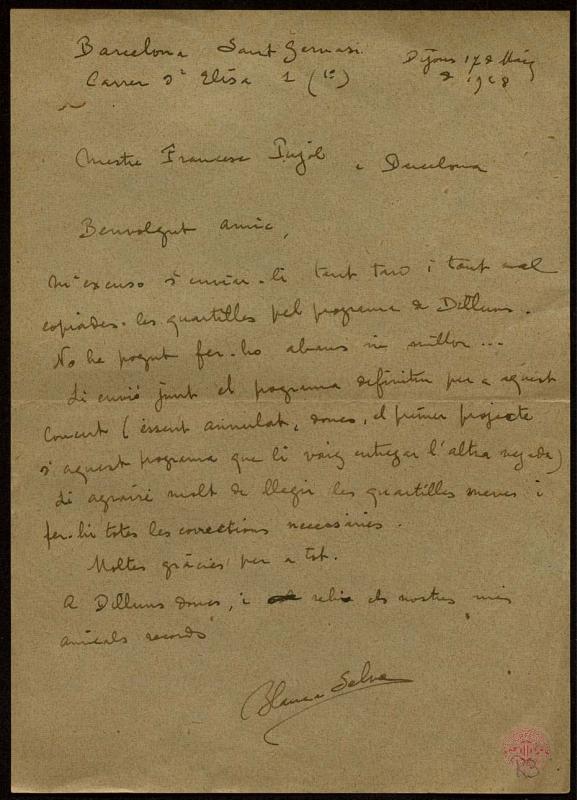 Barcelona Sant Gervasi Dijous 17 de Maig
Carrer d'Elisa 1 (1è) de 1928
Mestre Francesc Pujol a Barcelona
Benvolgut amic,
M'excuso d'enviar-li tant tard i tant mal
copiades les quartilles pel programa de Dilluns.
No he pogut fer-ho abans ni millor...
Li envio junt el programa definitiu per a aquest
Concert (essent annulat, doncs, el primer projecte
d'aquest programa que li vaig entregar l'altra vegada)
Li agrairé molt de llegir les quartilles meves i
fer-hi totes les correccions necessàries.
Moltes gràcies per a tot.
A Dilluns doncs, i rebi els nostres més
amicals records
Blanca Selva